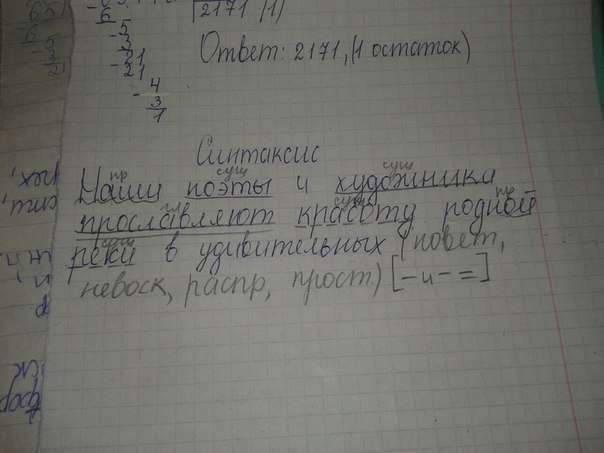 65
6
5
3
21
6
2171 (1)
5
3
21
21
4
3
1
Ответ: 2171, (1 остаток)
Синтаксис
пр сущ сущ
Наши поэты и художники
гл сущ пр
прославляют красоту родной
сущ
реки в удивительных (повет,
невоск, распр, прост) [– и – =]